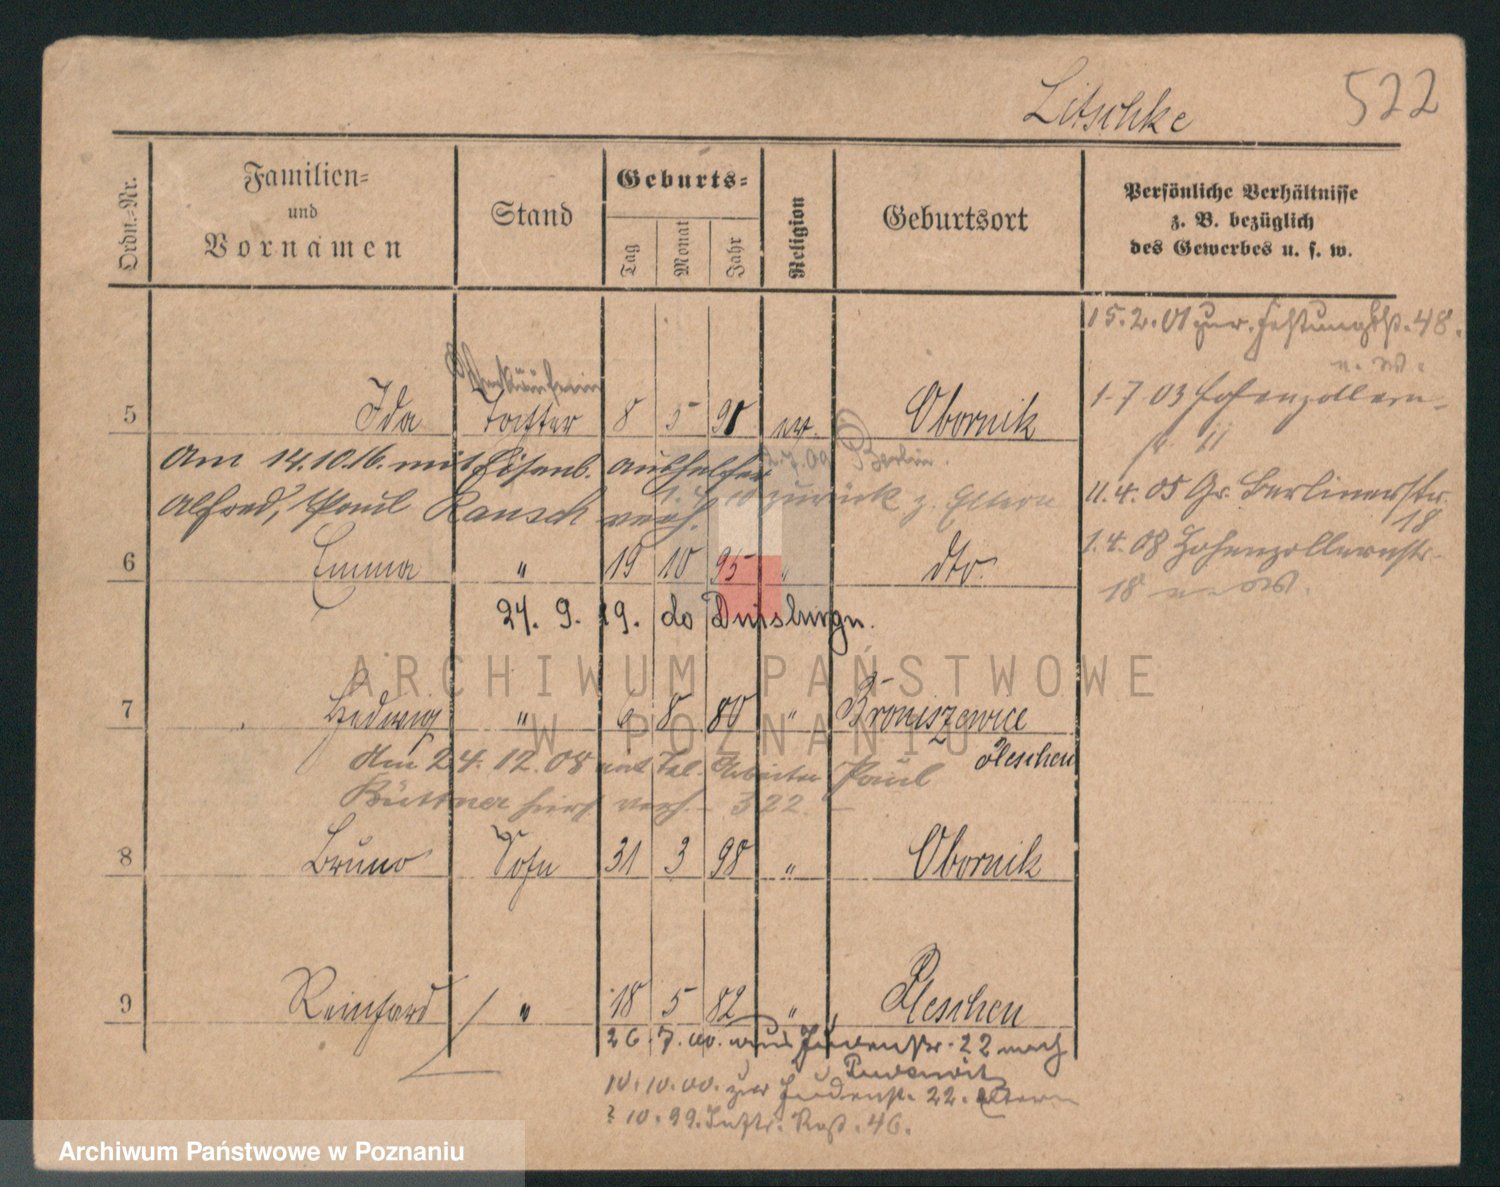 Litschke 522
Ordn.-Nr.
Familien-
und
Vornamen
Stand
Geburts-
Tag
Monat
Jahr
Religion
Geburtsort
Persönliche Verhältnisse
z. B. bezüglich
des Gewerbes u. s. w.
15.2.01 zur. Festungsstr. 48.
Verkäuferin
5 Ida Tochter 8 5 90 ev. Obornik
1.7.03 Hohenzollern-
str. 11
Am 14.10.16. mit Eisenb. Aushelfer
2.7.09 Berlin.
Alfred, Paul Rausch verh.
zurück z. Eltern
11.4.05 Gr. Berlinerstr.
18
6 Emma " 19 10 95 " dto.
1.4.08 Hohenzollernstr.
18
24. 9. 19. do Duisburgu.
ARCHIWUM PAŃSTWOWE
W POZNANIU
7 Hedwig " 6 8 80 " Broniszewice
Pleschen
Am 24.12.08 mit Tel. Arbeiter Paul
Büttner hier verh. 322.
8 Bruno Sohn 31 3 98 " Obornik
9 Reinhard " 18 5 82 " Pleschen
26.7.00. aus Judenstr. 22 nach
Pudewitz
10.10.00. zur Judenstr. 22. Eltern
2 10.99. Inftr. Rgt. 46.
Archiwum Państwowe w Poznaniu